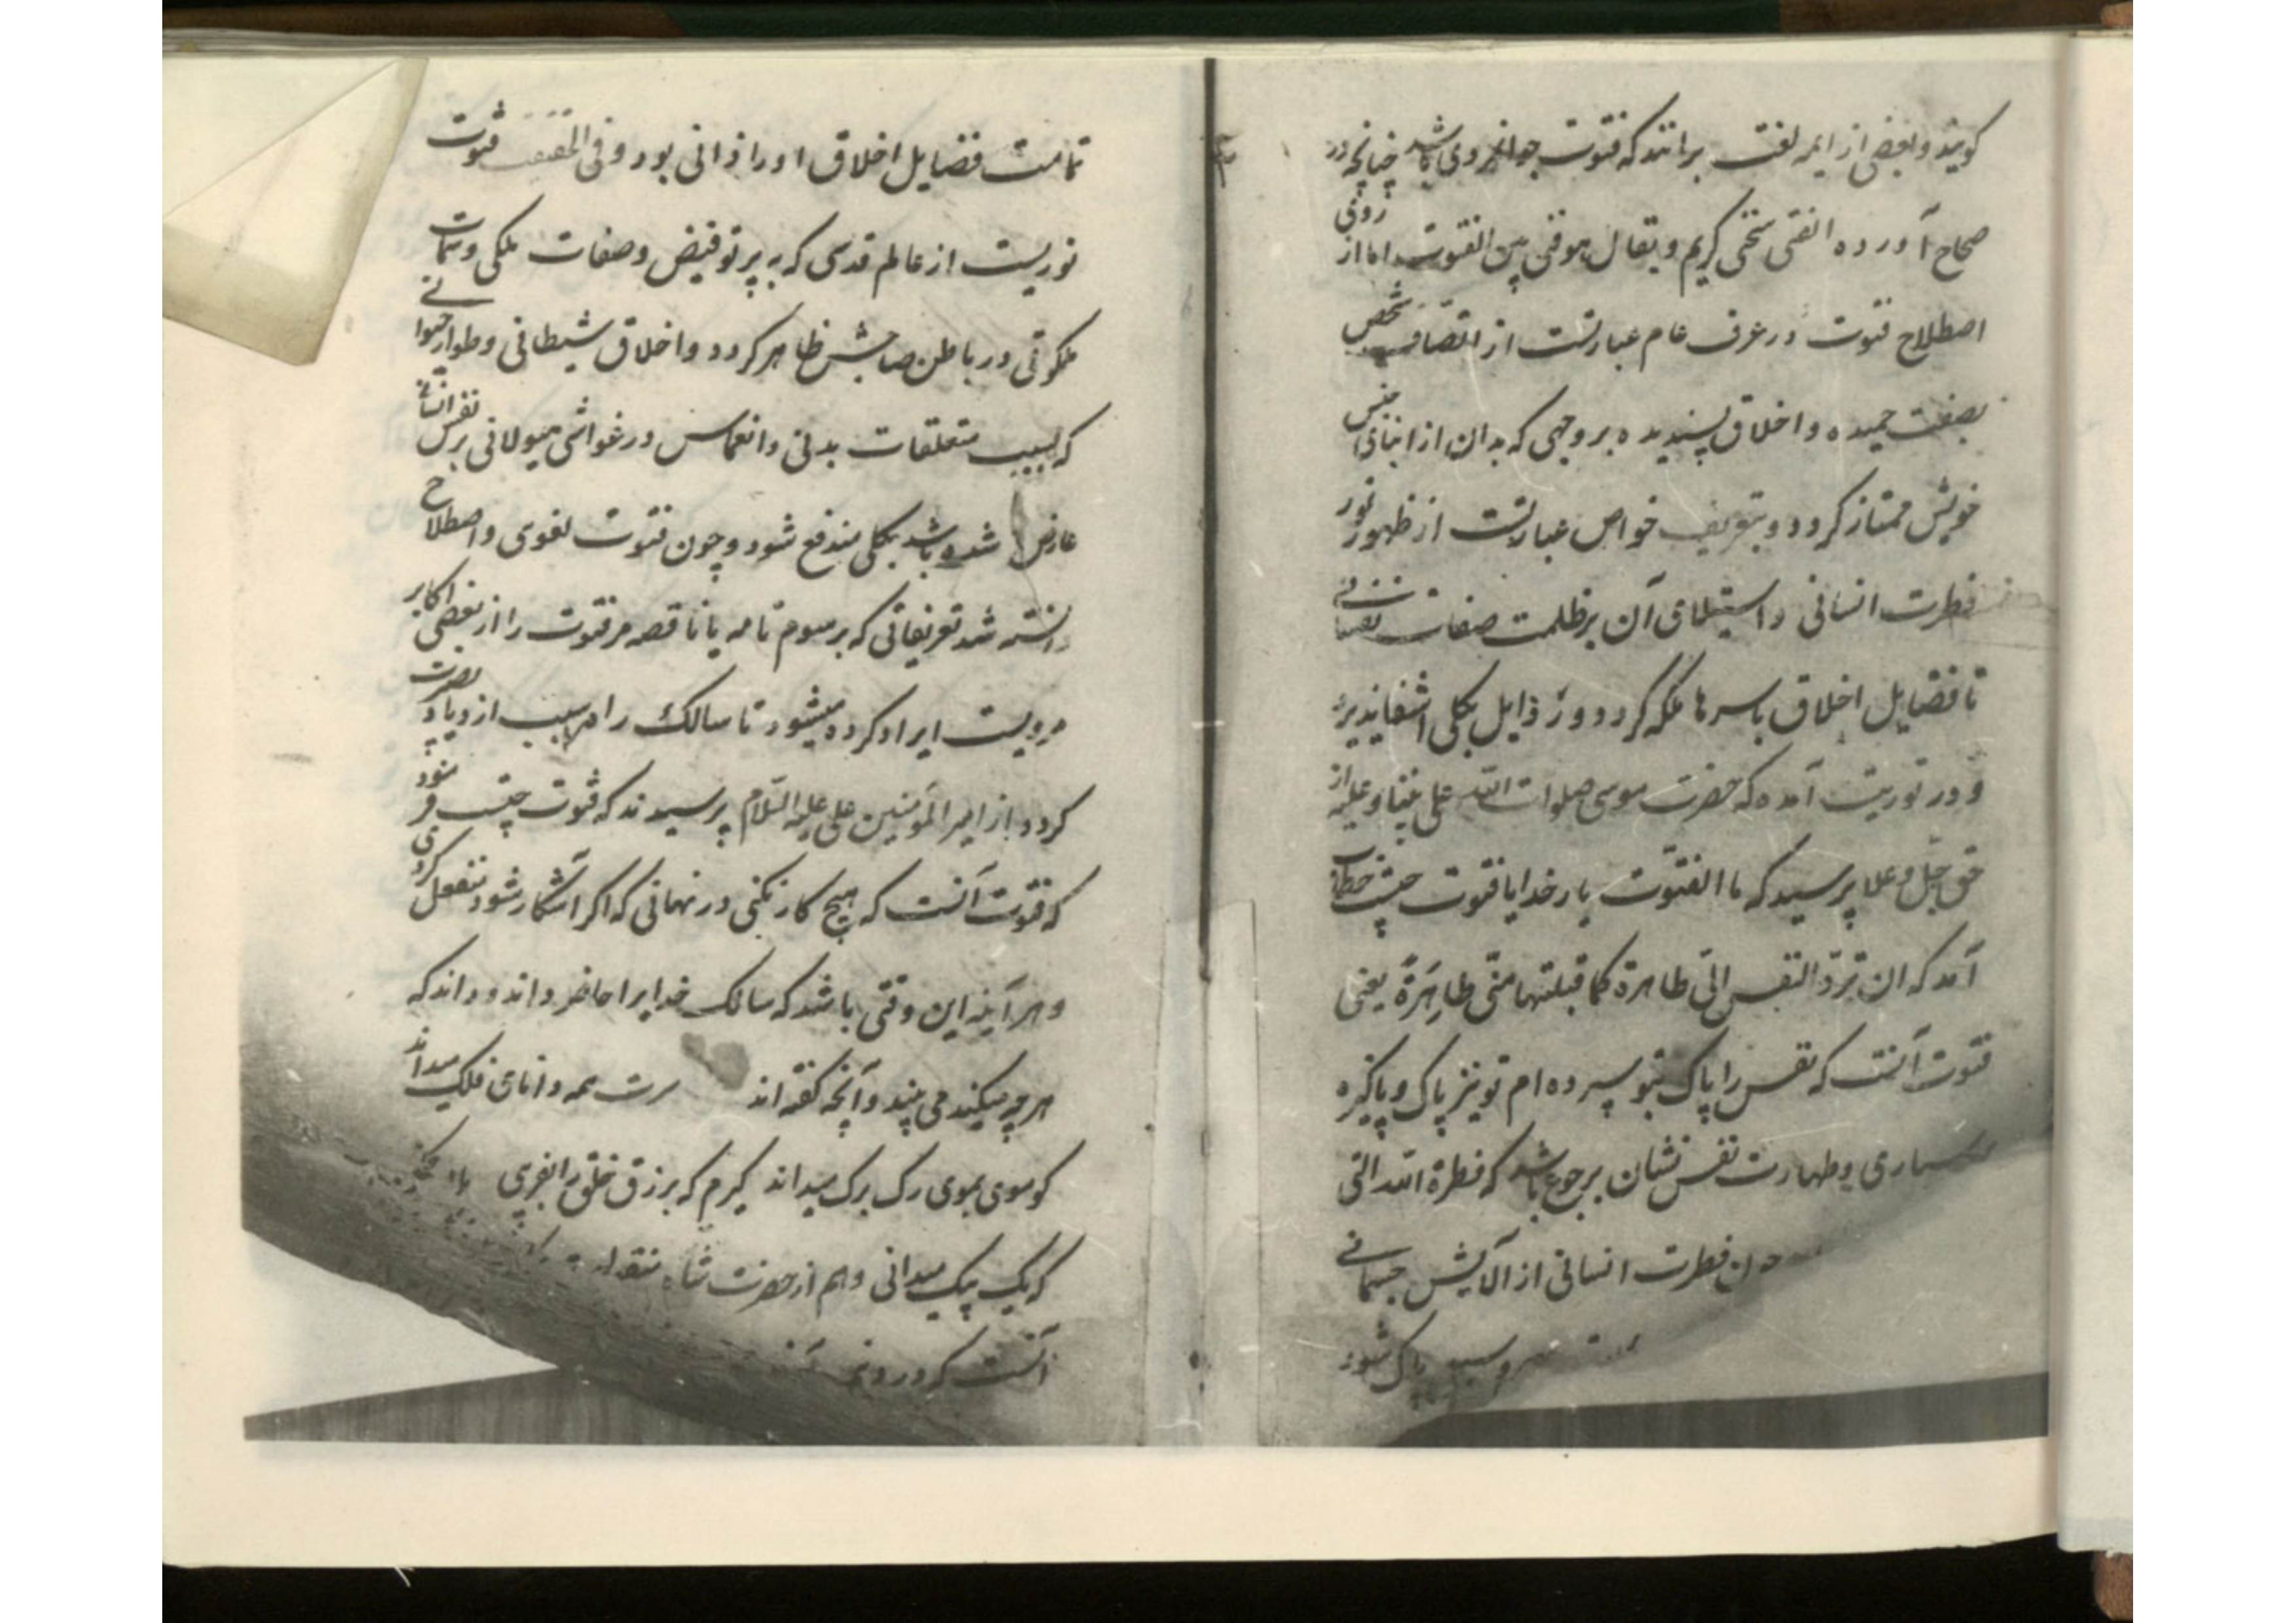 گویند و بعضی از ایمه لغت برانند که فتوت جوانمردی باشد چنانچه در
صحاح آورده الفتی سخی کریم و یقال هو فتی بین الفتوت اما از روی
اصطلاح فتوت در عرف عام عبارتست از اتصاف شخص
بصفت حمیده و اخلاق پسندیده بر وجهی که بدان از ابنای جنس
خویش ممتاز گردد و بتعریف خواص عبارتست از ظهور نور
فطرت انسانی و استیلای آن بر ظلمت صفات نفسانی
تا فضایل اخلاق باسرها ملکه گردد و رذایل بکلی انتفا پذیرد
و در توریت آمده که حضرت موسی صلوات الله علی نبینا و علیه از
حق جل و علا پرسید که ما الفتوت بار خدایا فتوت چیست خطاب
آمد که ان ترد النفس الی طاهرة کما قبلتها منی طاهرة یعنی
فتوت آنست که نفس را پاک بتو سپرده ام تو نیز پاک و پاکیزه
بسپاری و طهارت نفس نشان برجوع باشد که فطرة الله التی
فطرت انسانی از آلایش جسمانی
پاک شود
تمامت فضایل اخلاق او را ذاتی بود و فی الحقیقت فتوت
نوریست از عالم قدسی که به پرتو فیض و صفات ملکی و سمات
ملکوتی در باطن صاحبش ظاهر گردد و اخلاق شیطانی و طوار حیوانی
که بسبب متعلقات بدنی و انغماس در غواشی هیولانی بر نفس انسانی
عارض شده باشد بکلی مندفع شود و چون فتوت لغوی و اصطلاح
دانسته شد تعریفاتی که برسوم تامه یا ناقصه مر فتوت را از بعضی اکابر
مرویست ایراد کرده میشود تا سالک را سبب ازدیاد بصرت
گردد از امیر المؤمنین علی علیه السلام پرسیدند که فتوت چیست فرمود
که فتوت آنست که هیچ کار نکنی در نهانی که اگر آشکار شود منفعل گردی
و هر آینه این وقتی باشد که سالک خدایرا حاضر داند و داند که
هر چه میکند می بیند و آنچه گفته اند سرت همه دانای فلک میداند
کو موی بموی رگ برگ میداند گیرم که برزق خلق را بفریبی با او چکنی
که یک بیک میداند و هم از حضرت شاه
آنست که در دنیا